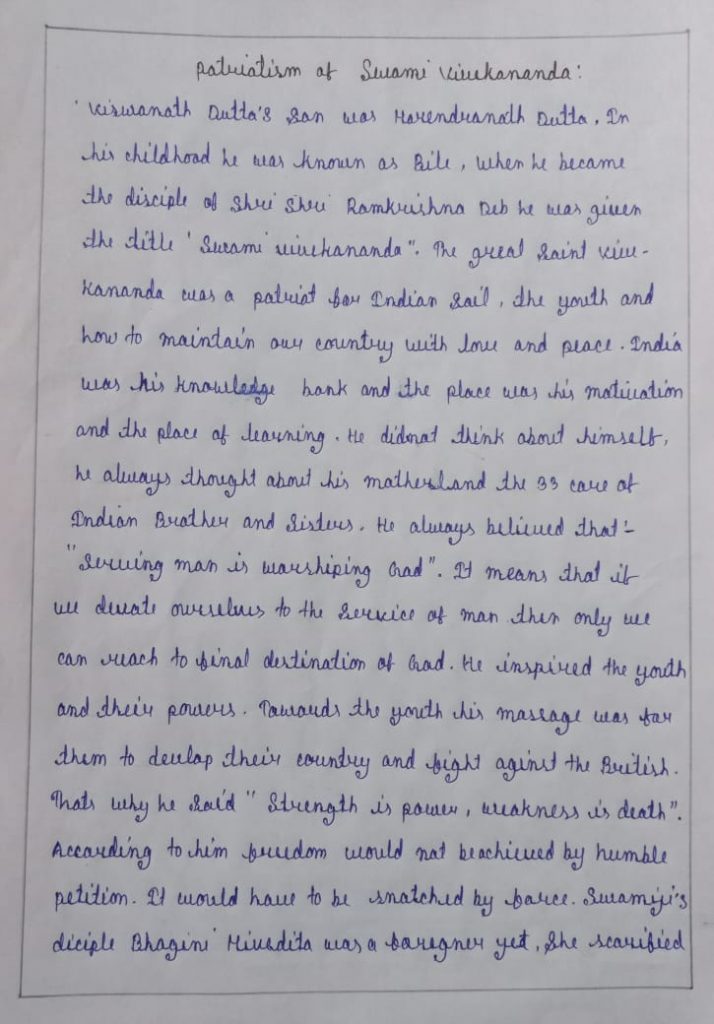 Patriatism of Swami Vivekananda:
'Viswanath Dutta's son was Narendranath Dutta. In
his childhood he was known as Bile, when he became
the disciple of Shri Shri Ramkrishna Deb he was given
the title ' Swami vivekananda". The great saint vive-
kananda was a patriot for Indian soil, the youth and
how to maintain our country with love and peace. India
was his knowledge bank and the place was his motivation
and the place of learning. He didnot think about himself,
he always thought about his motherland the 33 core of
Indian Brother and Sisters. He always believed that:-
"Serving man is worshiping God". It means that if
we devote ourselves to the service of man then only we
can reach to final destination of God. He inspired the youth
and their powers. Towards the youth his massage was for
them to devlop their country and fight against the British.
Thats why he said " Strength is power, weakness is death".
According to him freedom would not beachieved by humble
petition. It would have to be snatched by force. Swamiji's
diciple Bhagini Nivedita was a foregner yet, She scarified